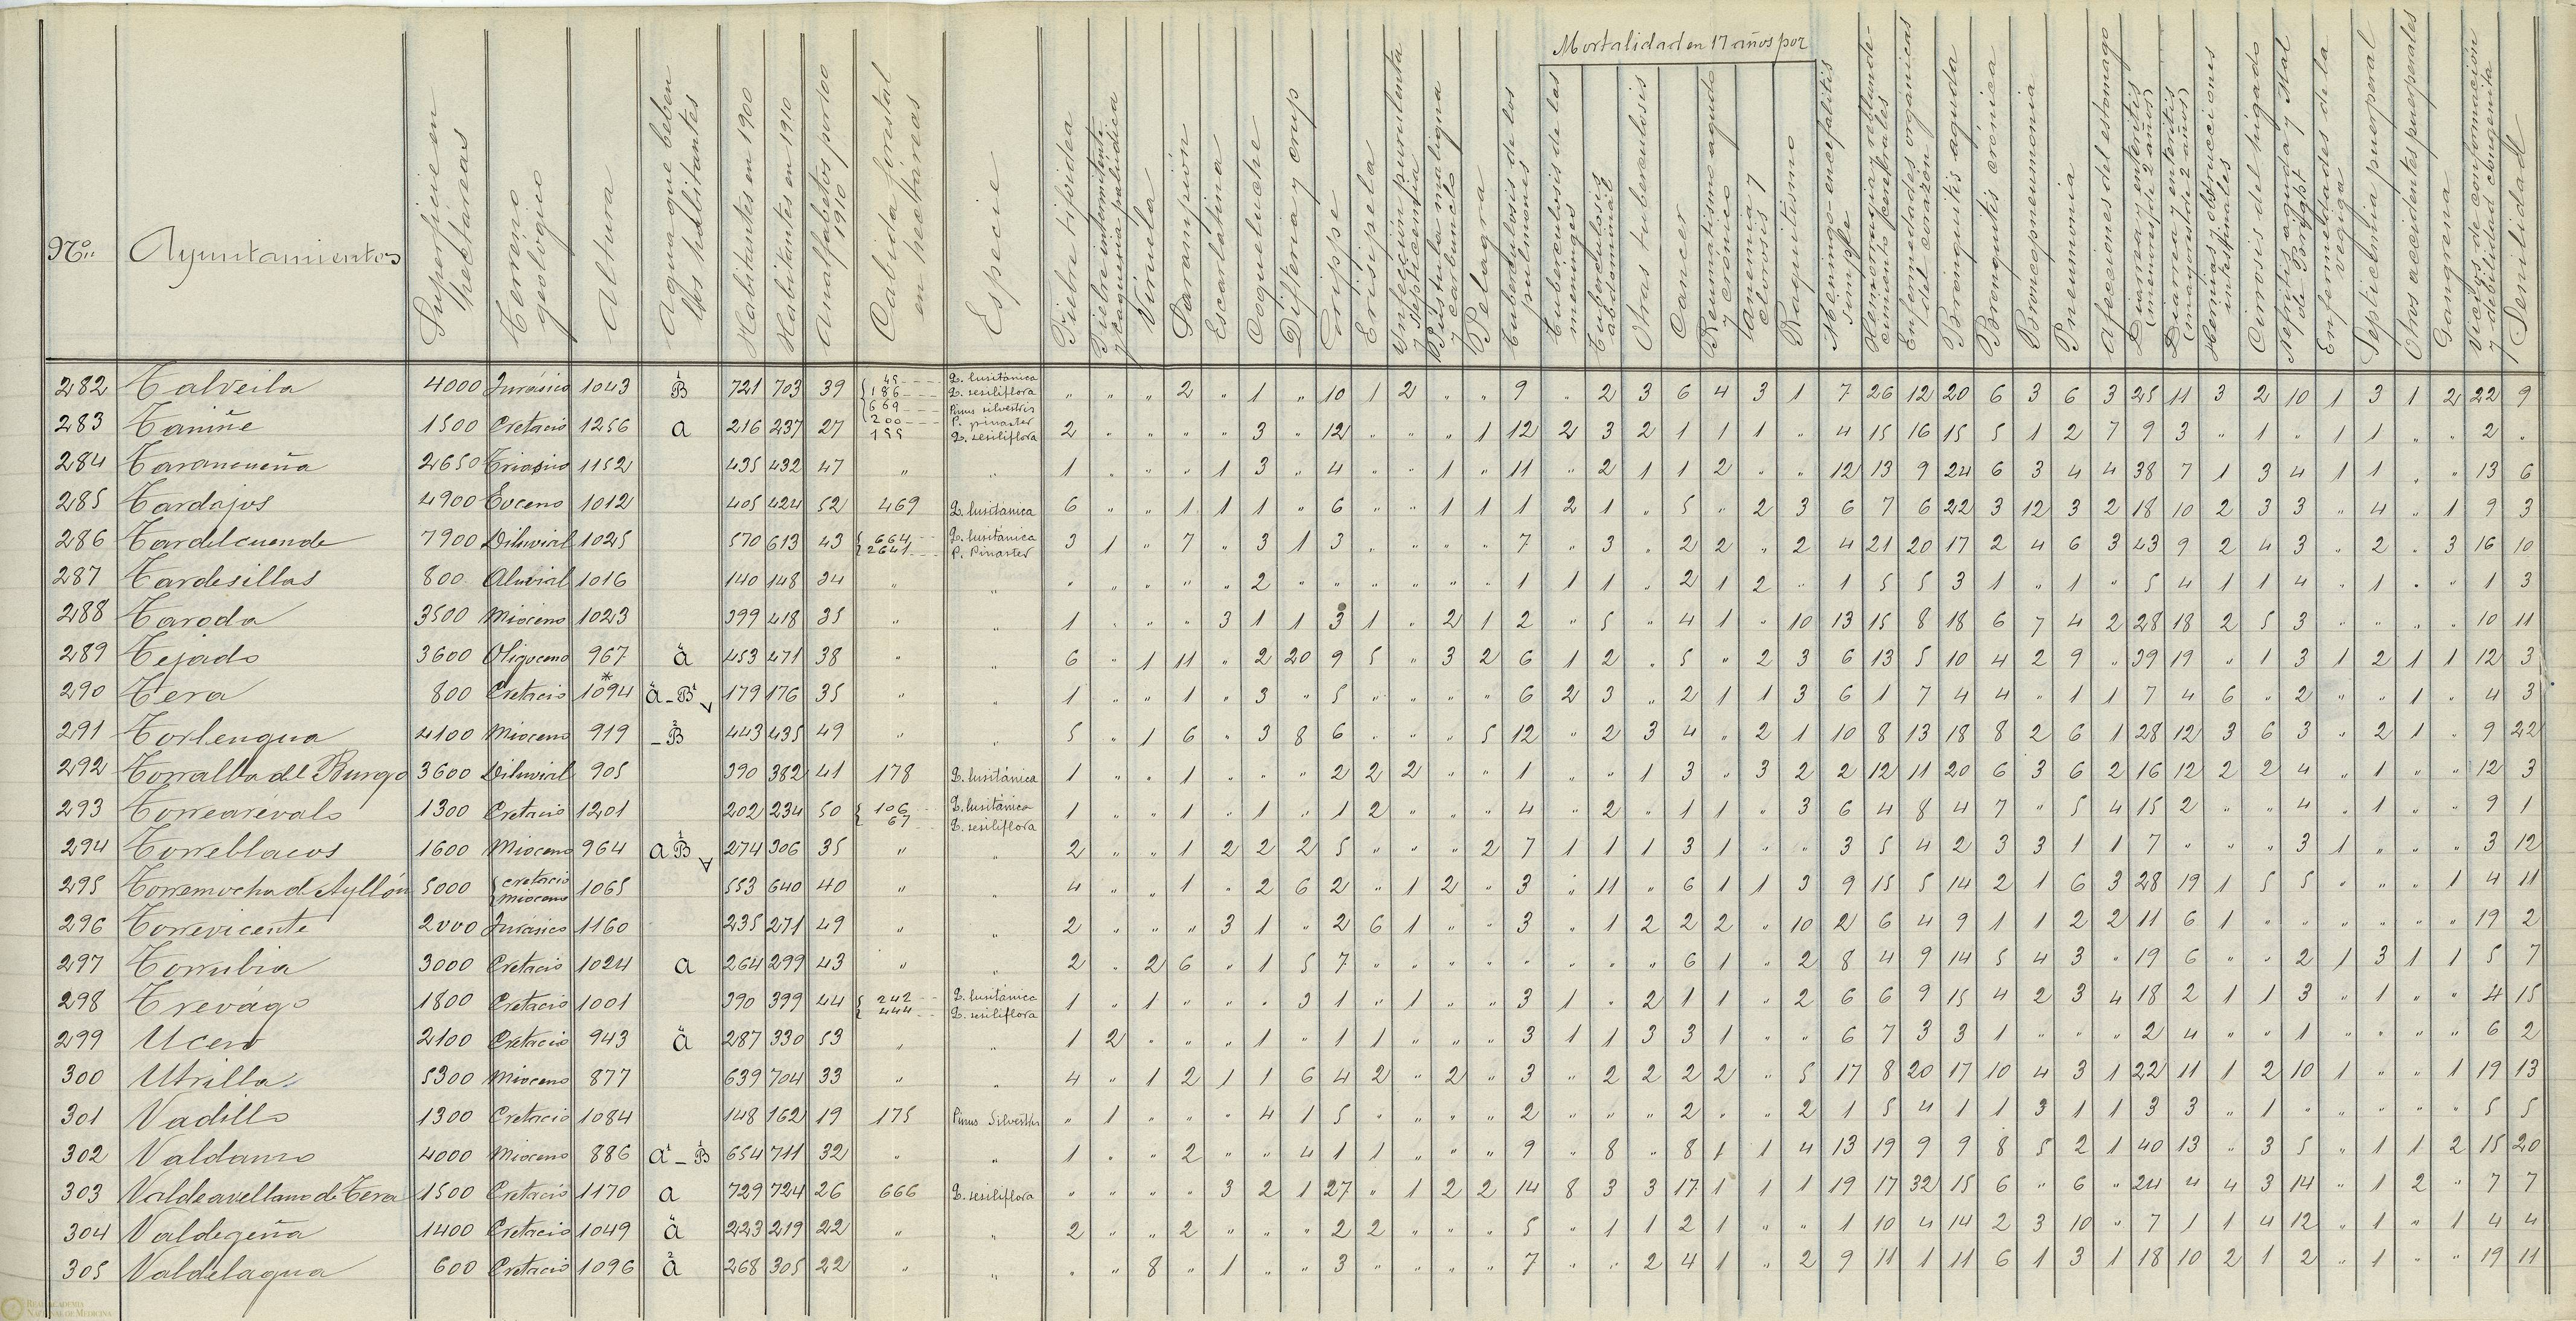 Mortalidad en 17 años por
Nº
Ayuntamientos
Superficie en hectáreas
Terreno geológico
Altura
Agua que beben los habitantes
Habitantes en 1900
Habitantes en 1910
Analfabetos por 100 1910
Cabida forestal en hectáreas
Especie
Fiebre tifoidea
Fiebre intermitente y caquexia palúdica
Viruela
Sarampión
Escarlatina
Coqueluche
Difteria y crup
Grippe
Erisipela
Infección purulenta y septicemia
Pústula maligna y carbunclo
Pelagra
Tuberculosis de los pulmones
Tuberculosis de las meninges
Tuberculosis abdominal
Otras tuberculosis
Cancer
Reumatismo agudo y crónico
Anemia y clorosis
Raquitismo
Meningo-encefalitis simple
Hemorragia y reblandecimiento cerebrales
Enfermedades orgánicas del corazón
Bronquitis aguda
Bronquitis crónica
Bronconeumonia
Pneumonia
Afecciones del estomago
Diarrea y enteritis (menores de 2 años)
Diarrea y enteritis (mayores de 2 años)
Hernias y obstrucciones intestinales
Cirrosis del hígado
Nefritis aguda y Mal de Bright
Enfermedades de la vegiga
Septicemia puerperal
Otros accidentes puerperales
Gangrena
Vicios de conformación y debilidad congenita
Senilidad
282 Talveila 4000 Jurásico 1043 B̊ 721 703 39 { 45 186 669 200 Q. lusitánica Q. sesiliflora Pinus silvestris P. pinaster " " " 2 " 1 " 10 1 2 " " 9 " 2 3 6 4 3 1 7 26 12 20 6 3 6 3 25 11 3 2 10 1 3 1 2 22 9
283 Taniñe 1500 Cretacio 1256 a 216 237 27 155 Q. sesiliflora 2 " " " " 3 " 12 " " " 1 12 2 3 2 1 1 1 " 4 15 16 15 5 1 2 7 9 3 " 1 " 1 1 " " 2 "
284 Tarancueña 2650 Triasico 1152 435 432 47 " " 1 " " " 1 3 " 4 " " 1 " 11 " 2 1 1 2 " " 12 13 9 24 6 3 4 4 38 7 1 3 4 1 1 " " 13 6
285 Tardajos 4900 Eoceno 1012 405 424 52 469 Q. lusitánica 6 " " 1 1 1 " 6 " " 1 1 1 2 1 " 5 " 2 3 6 7 6 22 3 12 3 2 18 10 2 3 3 " 4 " 1 9 3
286 Tardelcuende 7900 Diluvial 1025 570 613 43 { 664 2641 Q. lusitánica P. Pinaster 3 1 " 7 " 3 1 3 " " " " 7 " 3 " 2 2 " 2 4 21 20 17 2 4 6 3 43 9 2 4 3 " 2 " 3 16 10
287 Tardesillas 800 Aluvial 1016 140 148 34 " " " " " " " 2 " " " " " " 1 1 1 " 2 1 2 " 1 5 5 3 1 " 1 " 5 4 1 1 4 " 1 " " 1 3
288 Taroda 3500 Mioceno 1023 399 418 35 " " 1 " " " 3 1 1 3 1 " 2 1 2 " 5 " 4 1 " 10 13 15 8 18 6 7 4 2 28 18 2 5 3 " " " " 10 11
289 Tejado 3600 Oligoceno 967 ä 453 471 38 " " 6 " 1 11 " 2 20 9 5 " 3 2 6 1 2 " 5 " 2 3 6 13 5 10 4 2 9 " 39 19 " 1 3 1 2 1 1 12 3
290 Tera 800 Cretacio 1094* ä-B̊ 179 176 35 " " 1 " " 1 " 3 " 5 " " " " 6 2 3 " 2 1 1 3 6 1 7 4 4 " 1 1 7 4 6 " 2 " " 1 " 4 3
291 Torlengua 4100 Mioceno 919 -B² 443 435 49 " " 5 " 1 6 " 3 8 6 " " " 5 12 " 2 3 4 " 2 1 10 8 13 18 8 2 6 1 28 12 3 6 3 " 2 1 " 9 22
292 Torralba del Burgo 3600 Diluvial 905 390 382 41 178 Q. lusitánica 1 " " 1 " " " 2 2 2 " " 1 " " 1 3 " 3 2 2 12 11 20 6 3 6 2 16 12 2 2 4 " 1 " " 12 3
293 Torrearévalo 1300 Cretacio 1201 202 234 50 { 106 67 Q. lusitánica Q. sesiliflora 1 " " 1 " 1 " 1 2 " " " 4 " 2 " 1 1 " 3 6 4 8 4 7 " 5 4 15 2 " " 4 " 1 " " 9 1
294 Torreblacos 1600 Mioceno 964 a B̊ 274 306 35 " " 2 " " 1 2 2 2 5 " " " 2 7 1 1 1 3 1 " " 3 5 4 2 3 3 1 1 7 " " " 3 1 " " " 3 12
295 Torremocha de Ayllón 5000 { cretacio mioceno 1065 553 640 40 " " 4 " " 1 " 2 6 2 " 1 2 " 3 " 11 " 6 1 1 3 9 15 5 14 2 1 6 3 28 19 1 5 5 " " " 1 4 11
296 Torrevicente 2000 Jurásico 1160 235 271 49 " " 2 " " " 3 1 " 2 6 1 " " 3 " 1 2 2 2 " 10 2 6 4 9 1 1 2 2 11 6 1 " " " " " " 19 2
297 Torrubia 3000 Cretacio 1024 a 264 299 43 " " 2 " 2 6 " 1 5 7 " " " " " " " " 6 1 " 2 8 4 9 14 5 4 3 " 19 6 " " 2 1 3 1 1 5 7
298 Trevágo 1800 Cretacio 1001 390 399 44 { 242 444 Q. lusitánica Q. sesiliflora 1 " 1 " " " 3 1 " 1 " " 3 1 " 2 1 1 " 2 6 6 9 15 4 2 3 4 18 2 1 1 3 " 1 " " 4 15
299 Ucero 2100 Cretacio 943 ä 287 330 53 " " 1 2 " " " 1 " 1 1 " " " 3 1 1 3 3 1 " " 6 7 3 3 1 " " " 2 4 " " 1 " " " " 6 2
300 Utrilla 5300 Mioceno 877 639 704 33 " " 4 " 1 2 1 1 6 4 2 " 2 " 3 " 2 2 2 2 " 5 17 8 20 17 10 4 3 1 22 11 1 2 10 1 " " 1 19 13
301 Vadillo 1300 Cretacio 1084 148 162 19 175 Pinus Silvestris " 1 " " " 4 1 5 " " " " 2 " " " 2 " " 2 1 5 4 1 1 3 1 1 3 3 " 1 " " " " " 5 5
302 Valdanzo 4000 Mioceno 886 a²-B̊ 654 711 32 " " 1 " " 2 " " 4 1 1 " " " 9 " 8 " 8 1 1 4 13 19 9 9 8 5 2 1 40 13 " 3 5 " 1 1 2 15 20
303 Valdeavellano de Tera 1500 Cretacio 1170 a 729 724 26 666 Q. sesiliflora " " " " 3 2 1 27 " 1 2 2 14 8 3 3 17 1 1 1 19 17 32 15 6 " 6 " 24 4 4 3 14 " 1 2 " 7 7
304 Valdegeña 1400 Cretacio 1049 ä 223 219 22 " " 2 " " 2 " " " 2 2 " " " 5 " 1 1 2 1 " " 1 10 4 14 2 3 10 " 7 1 1 4 12 " 1 " 1 4 4
305 Valdelagua 600 Cretacio 1096 a² 268 305 22 " " " " 8 " 1 " " 3 " " " " 7 " " 2 4 1 " 2 9 11 1 11 6 1 3 1 18 10 2 1 2 " 1 " " 19 11
REAL ACADEMIA
NACIONAL DE MEDICINA